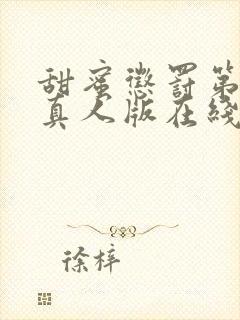 甜蜜惩罚第
真人版在线
徐梓